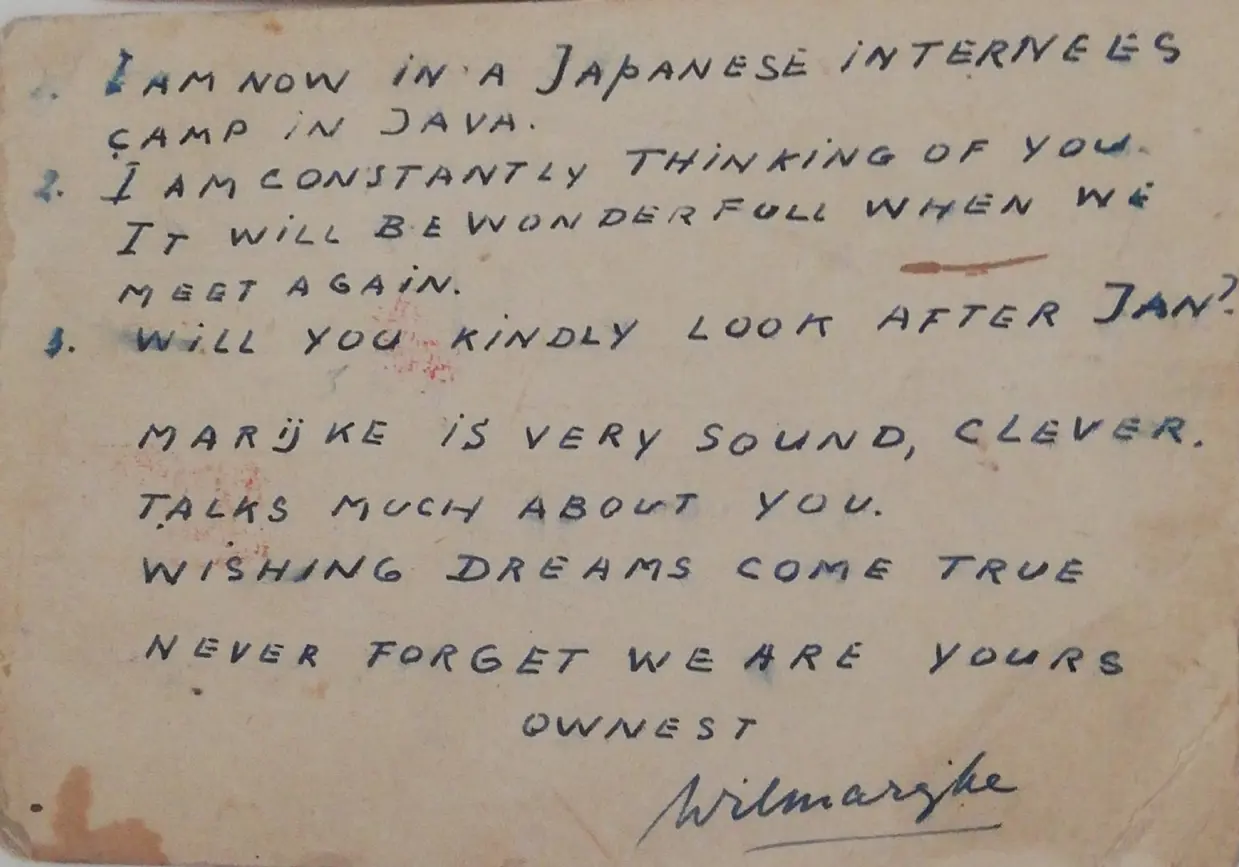 1. I AM NOW IN A JAPANESE INTERNEES
CAMP IN JAVA.
2. I AM CONSTANTLY THINKING OF YOU.
IT WILL BE WONDERFULL WHEN WE
MEET AGAIN.
3. WILL YOU KINDLY LOOK AFTER JAN?
MARIJKE IS VERY SOUND, CLEVER.
TALKS MUCH ABOUT YOU.
WISHING DREAMS COME TRUE
NEVER FORGET WE ARE YOURS
OWNEST
Wilmarijke